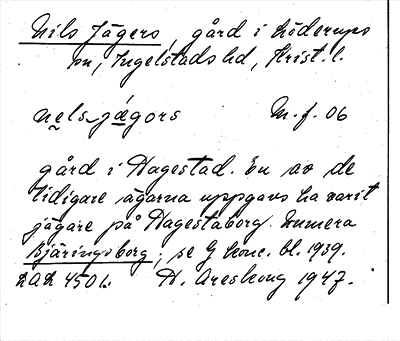 Nils Jägers, gård i Löderups
sn, Ingelstads hd, Krist. l.
nels jǽgors M. f. 06
gård i Hagestad. En av de
tidigare ägarna uppgavs ha varit
jägare på Hagestaborg. Numera
Bjäringsborg; se G konc. bl. 1939.
LAL 4501. H. Areskoug 1947.